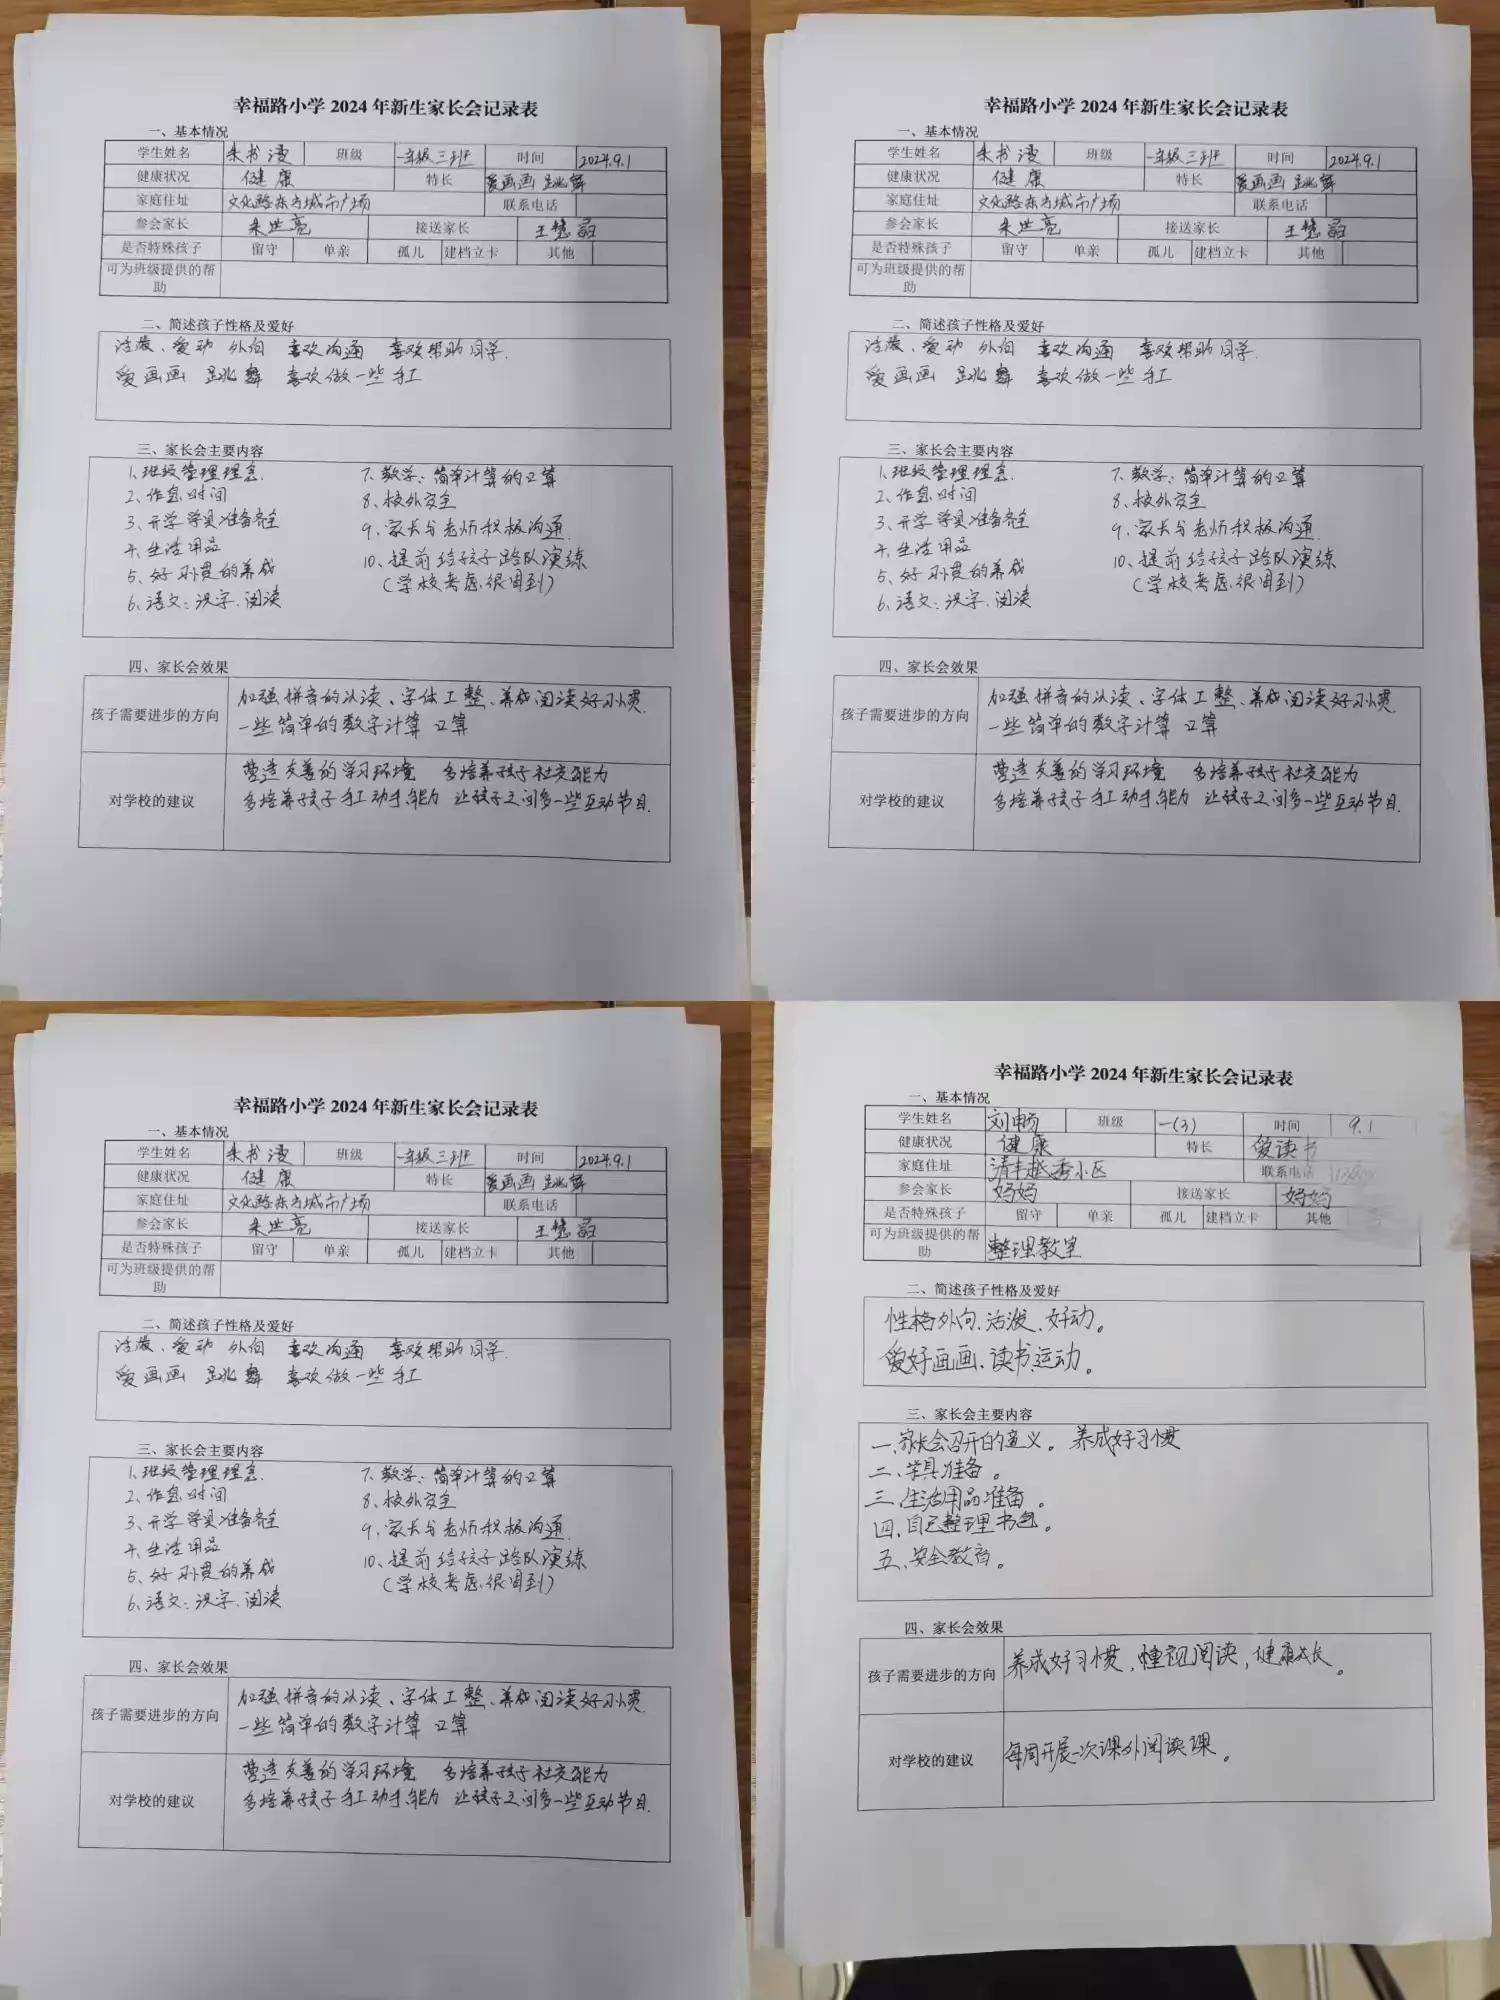 幸福路小学 2024 年新生家长会记录表
一、基本情况
学生姓名 朱书漫 班级 一年级三班 时间 2024.9.1
健康状况 健康 特长 爱画画 跳舞
家庭住址 文化路东方城市广场 联系电话
参会家长 朱世亮 接送家长 王慧
是否特殊孩子 留守 单亲 孤儿 建档立卡 其他
可为班级提供的帮
助
二、简述孩子性格及爱好
活泼、爱动 外向 喜欢沟通 喜欢帮助同学.
爱画画 跳舞 喜欢做一些手工
三、家长会主要内容
1、班级管理理念.
2、作息时间
3、开学学具准备齐全
4、生活用品
5、好习惯的养成
6、语文:识字、阅读
7、数学:简单计算的口算
8、校外安全
9、家长与老师积极沟通.
10、提前给孩子路队演练
(学校考虑很周到)
四、家长会效果
孩子需要进步的方向 加强拼音的认读、字体工整、养成阅读好习惯.
一些简单的数字计算 口算
对学校的建议 营造友善的学习环境 多培养孩子社交能力
多培养孩子手工动手能力 让孩子之间多一些互动节目.
幸福路小学 2024 年新生家长会记录表
一、基本情况
学生姓名 朱书漫 班级 一年级三班 时间 2024.9.1
健康状况 健康 特长 爱画画 跳舞
家庭住址 文化路东方城市广场 联系电话
参会家长 朱世亮 接送家长 王慧
是否特殊孩子 留守 单亲 孤儿 建档立卡 其他
可为班级提供的帮
助
二、简述孩子性格及爱好
活泼、爱动 外向 喜欢沟通 喜欢帮助同学.
爱画画 跳舞 喜欢做一些手工
三、家长会主要内容
1、班级管理理念.
2、作息时间
3、开学学具准备齐全
4、生活用品
5、好习惯的养成
6、语文:识字、阅读
7、数学:简单计算的口算
8、校外安全
9、家长与老师积极沟通.
10、提前给孩子路队演练
(学校考虑很周到)
四、家长会效果
孩子需要进步的方向 加强拼音的认读、字体工整、养成阅读好习惯.
一些简单的数字计算 口算
对学校的建议 营造友善的学习环境 多培养孩子社交能力
多培养孩子手工动手能力 让孩子之间多一些互动节目.
幸福路小学 2024 年新生家长会记录表
一、基本情况
学生姓名 朱书漫 班级 一年级三班 时间 2024.9.1
健康状况 健康 特长 爱画画 跳舞
家庭住址 文化路东方城市广场 联系电话
参会家长 朱世亮 接送家长 王慧
是否特殊孩子 留守 单亲 孤儿 建档立卡 其他
可为班级提供的帮
助
二、简述孩子性格及爱好
活泼、爱动 外向 喜欢沟通 喜欢帮助同学.
爱画画 跳舞 喜欢做一些手工
三、家长会主要内容
1、班级管理理念.
2、作息时间
3、开学学具准备齐全
4、生活用品
5、好习惯的养成
6、语文:识字、阅读
7、数学:简单计算的口算
8、校外安全
9、家长与老师积极沟通.
10、提前给孩子路队演练
(学校考虑很周到)
四、家长会效果
孩子需要进步的方向 加强拼音的认读、字体工整、养成阅读好习惯.
一些简单的数字计算 口算
对学校的建议 营造友善的学习环境 多培养孩子社交能力
多培养孩子手工动手能力 让孩子之间多一些互动节目.
幸福路小学 2024 年新生家长会记录表
一、基本情况
学生姓名 刘畅 班级 一(3) 时间 9.1
健康状况 健康 特长 爱读书
家庭住址 清丰越秀小区 联系电话
参会家长 妈妈 接送家长 妈妈
是否特殊孩子 留守 单亲 孤儿 建档立卡 其他
可为班级提供的帮
助 整理教室
二、简述孩子性格及爱好
性格外向、活泼、好动。
爱好画画、读书、运动。
三、家长会主要内容
一、家长会召开的意义。 养成好习惯
二、学具准备。
三、生活用品准备。
四、自己整理书包。
五、安全教育。
四、家长会效果
孩子需要进步的方向 养成好习惯,重视阅读,健康成长。
对学校的建议 每周开展一次课外阅读课。